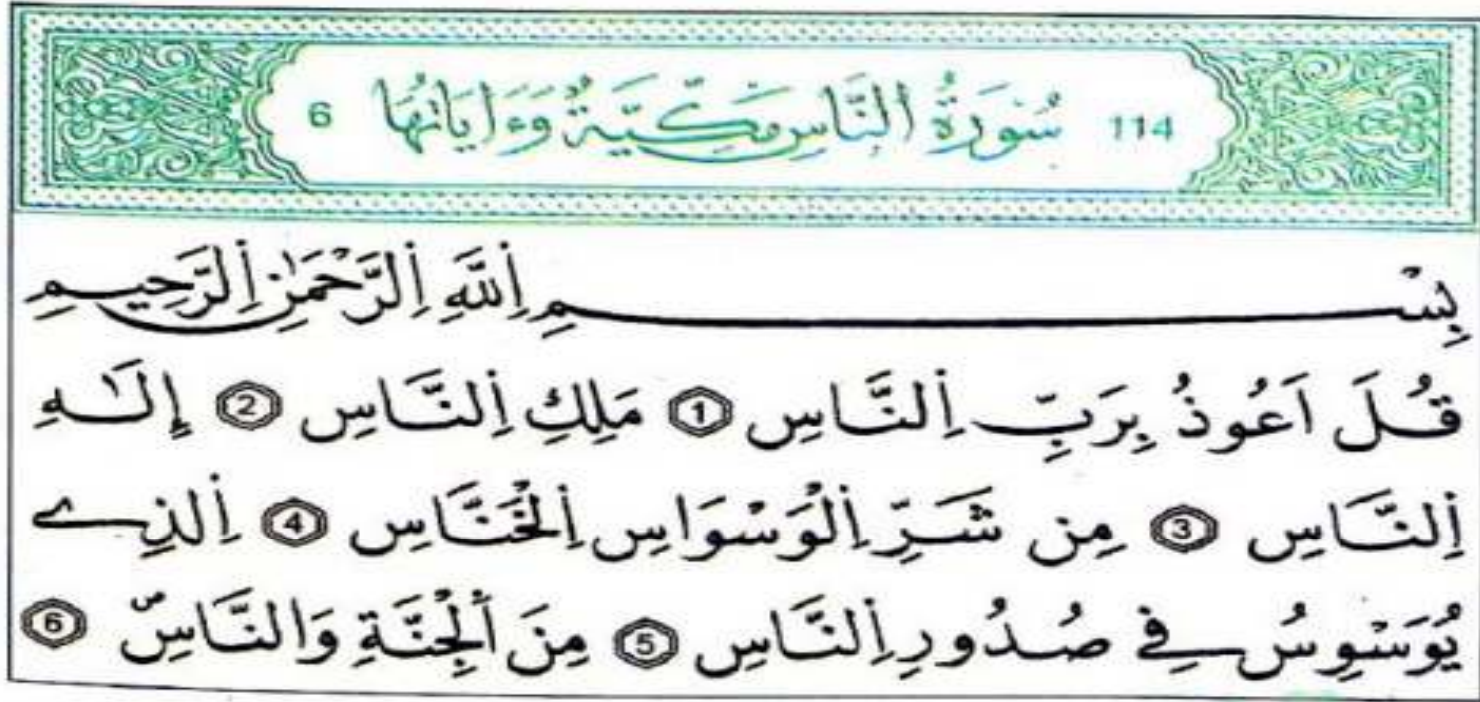 114 سُورَةُ اُلنَّاسِ مَكِّيَّةٌ وَءَايَاتُهَا 6
بِسْمِ اِللَّهِ اِلرَّحْمَٰنِ اِلرَّحِيمِ
قُلَ اَعُوذُ بِرَبِّ اِلنَّاسِ 1 مَلِكِ اِلنَّاسِ 2 إِلَٰهِ
اِلنَّاسِ 3 مِن شَرِّ اِلْوَسْوَاسِ اِلْخَنَّاسِ 4 اِلذِے
يُوَسْوِسُ فِے صُدُورِ اِلنَّاسِ 5 مِنَ اَلْجِنَّةِ وَالنَّاسِ 6